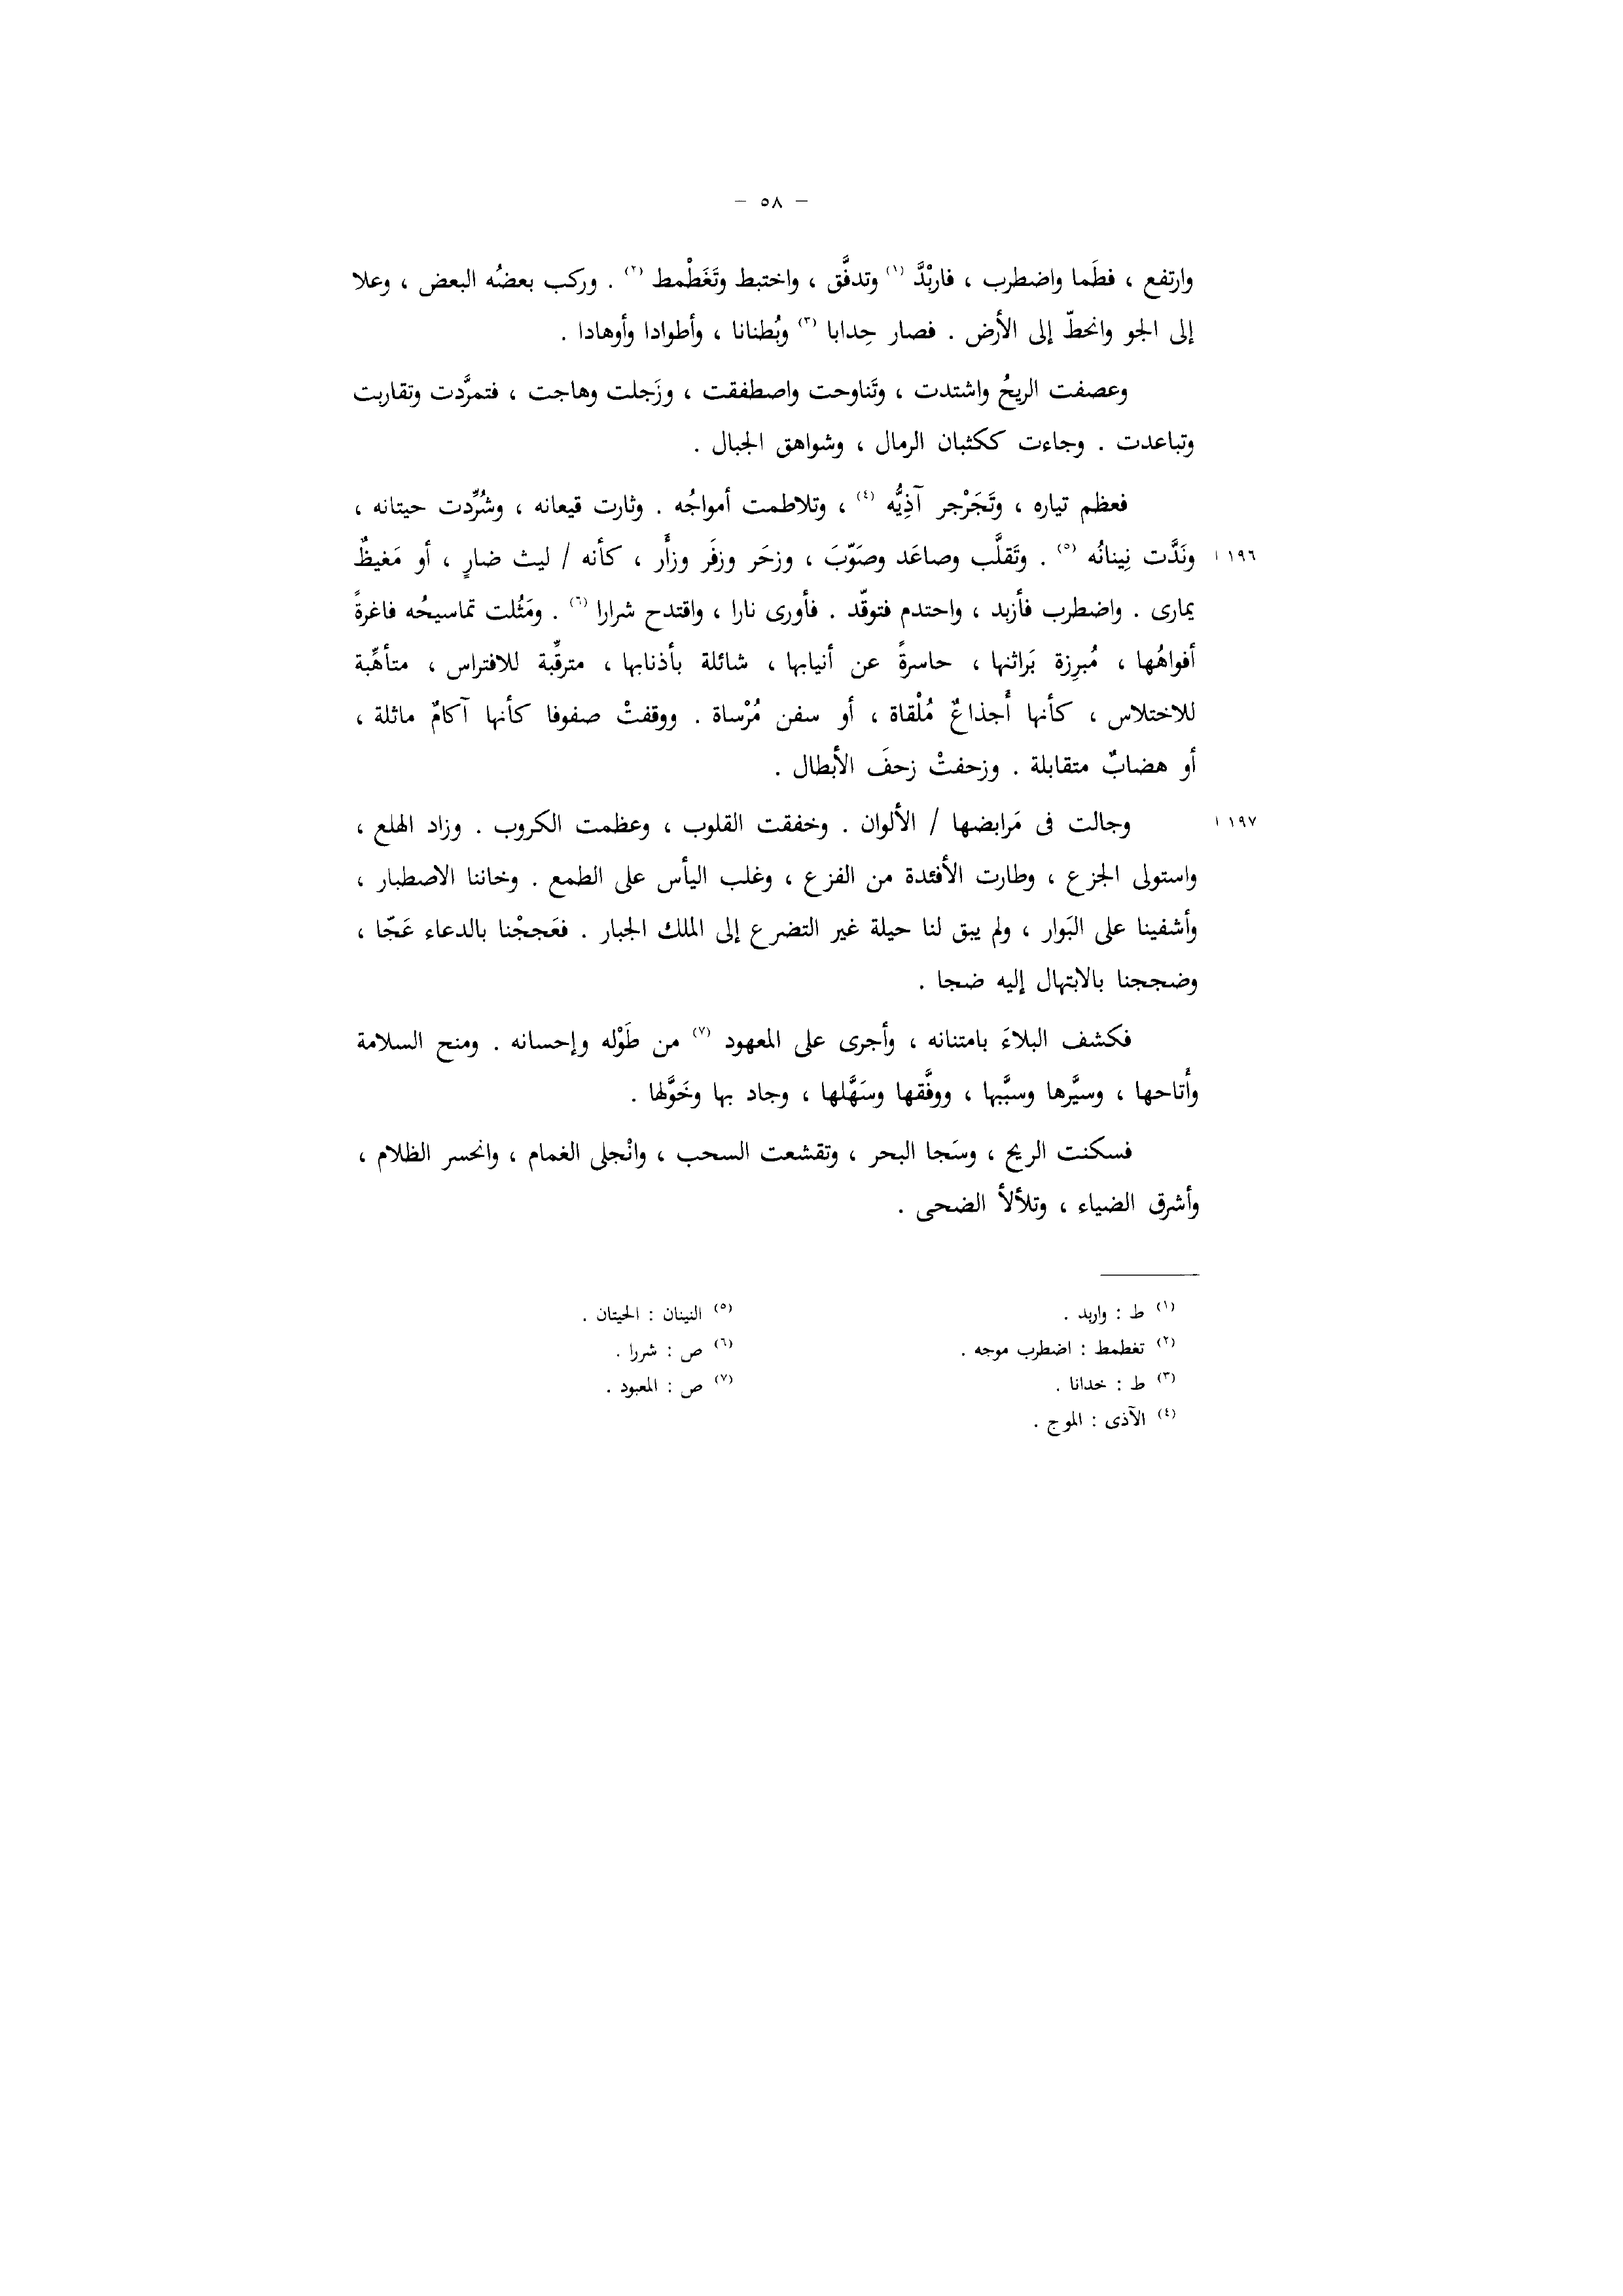 – ٥٨ –
وارتفع ، فطَما واضطرب ، فاربْدَّ (١) وتدفَّق ، واختبط وتَغَطْمط (٢) . وركب بعضُه البعض ، وعلا
إلى الجو وانحطّ إلى الأرض . فصار حِدابا (٣) وبُطنانا ، وأطوادا وأوهادا .
وعصفت الريحُ واشتدت ، وتَناوحت واصطفقت ، وزَجلت وهاجت ، فتمرَّدت وتقاربت
وتباعدت . وجاءت ككثبان الرمال ، وشواهق الجبال .
فعظم تياره ، وتَجَرْجر آذِيُّه (٤) ، وتلاطمت أمواجُه . وثارت قيعانه ، وشُرِّدت حيتانه ،
١٩٦ ا ونَدَّت نِينانُه (٥) . وتَقلَّب وصاعَد وصَوّبَ ، وزحَر وزفَر وزأَر ، كأنه / ليث ضارٍ ، أو مَغيظٌ
يمارى . واضطرب فأزبد ، واحتدم فتوقّد . فأورى نارا ، واقتدح شرارا (٦) . ومَثُلت تماسيحُه فاغرةً
أفواهُها ، مُبرِزة بَراثنها ، حاسرةً عن أنيابها ، شائلة بأذنابها ، مترقِّبة للافتراس ، متأهِّبة
للاختلاس ، كأنها أَجذاعٌ مُلْقاة ، أو سفن مُرْساة . ووقفتْ صفوفا كأنها آكامٌ ماثلة ،
أو هضابٌ متقابلة . وزحفتْ زحفَ الأبطال .
١٩٧ ا وجالت فى مَرابضها / الألوان . وخفقت القلوب ، وعظمت الكروب . وزاد الهلع ،
واستولى الجزع ، وطارت الأفئدة من الفزع ، وغلب اليأس على الطمع . وخاننا الاصطبار ،
وأشفينا على البَوار ، ولم يبق لنا حيلة غير التضرع إلى الملك الجبار . فعَججْنا بالدعاء عَجّا ،
وضججنا بالابتهال إليه ضجا .
فكشف البلاءَ بامتنانه ، وأجرى على المعهود (٧) من طَوْله وإحسانه . ومنح السلامة
وأَتاحها ، وسيَّرها وسبَّبها ، ووفَّقها وسَهَّلها ، وجاد بها وخَوَّلها .
فسكنت الريح ، وسَجا البحر ، وتقشعت السحب ، وانْجلى الغمام ، وانحسر الظلام ،
وأشرق الضياء ، وتلألأ الضحى .
(١) ط : واربد .
(٢) تغطمط : اضطرب موجه .
(٣) ط : خدانا .
(٤) الآذى : الموج .
(٥) النينان : الحيتان .
(٦) ص : شررا .
(٧) ص : المعبود .